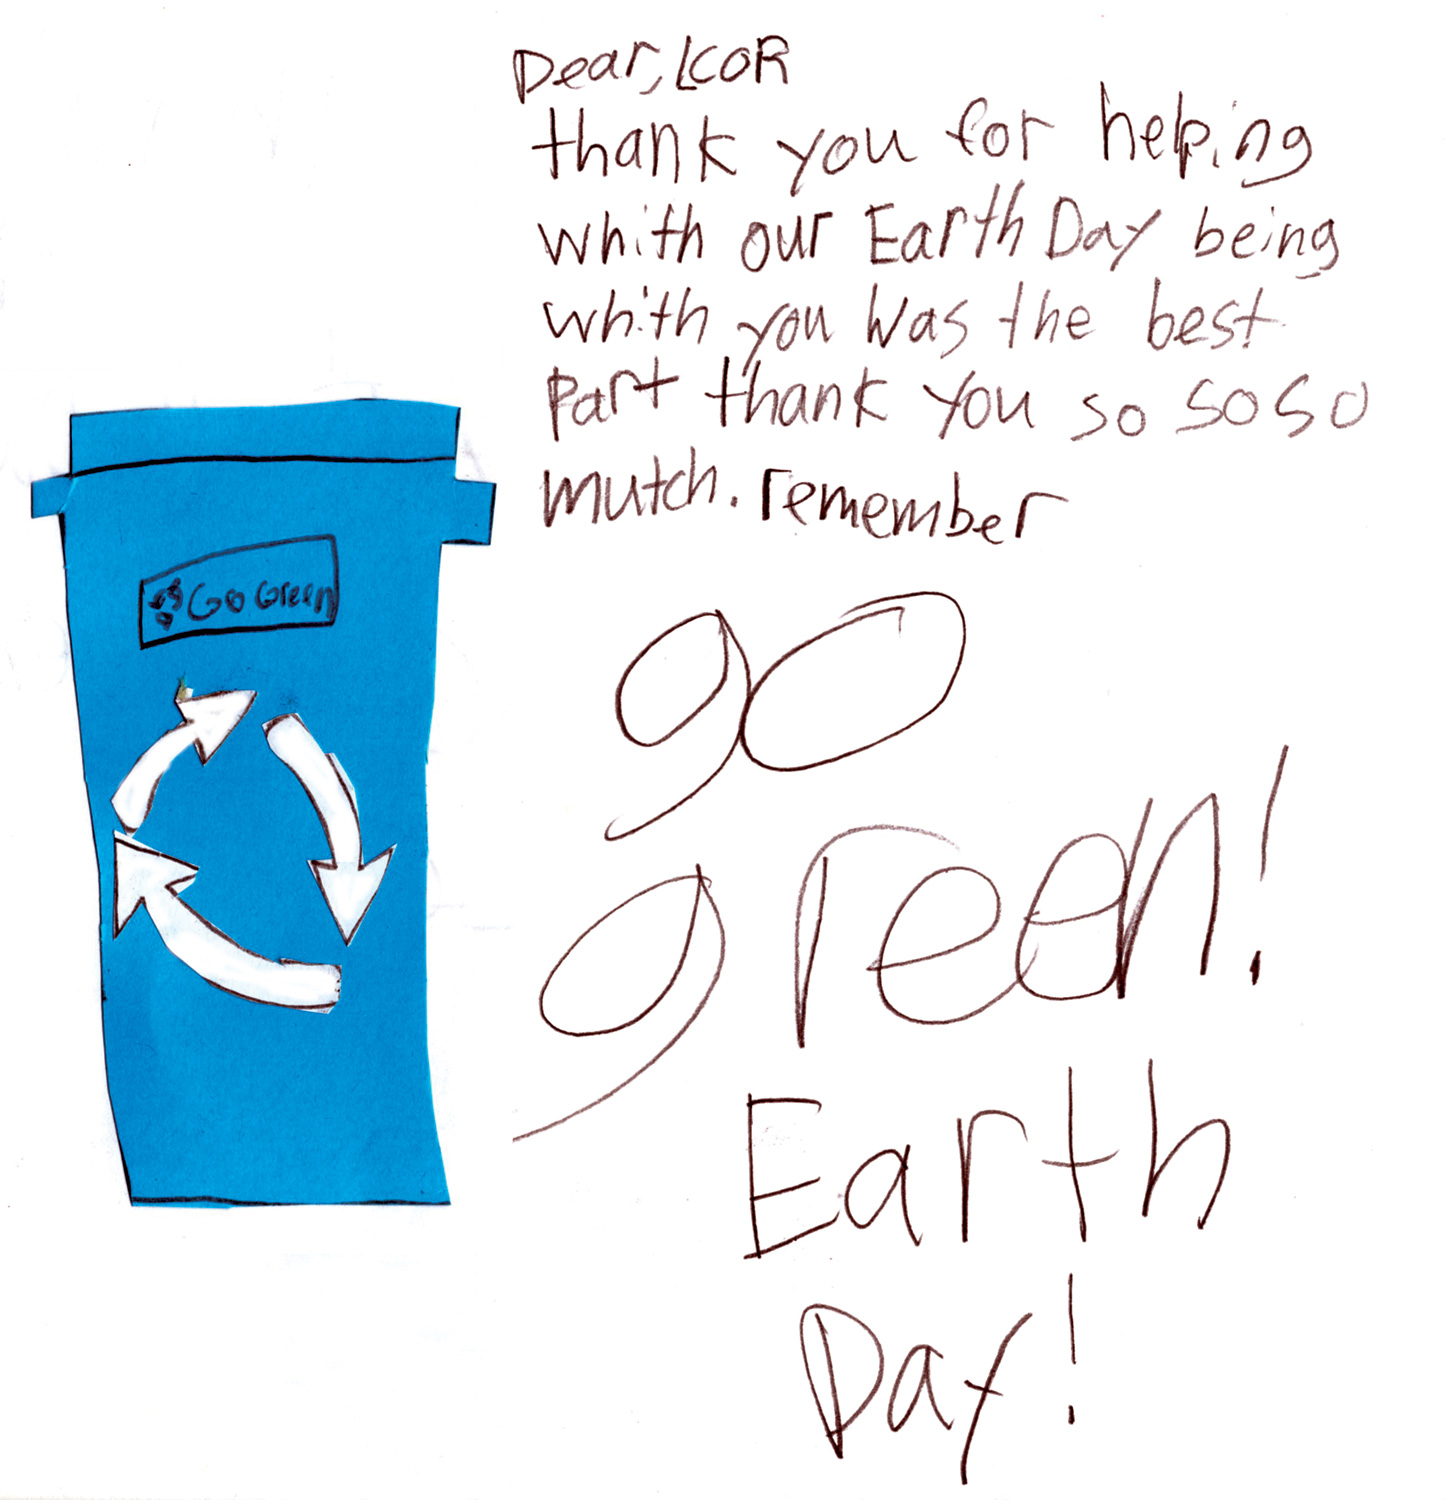 Dear, LCOR
thank you for helping
whith our Earth Day being
whith you was the best
Part thank you so so so
mutch. remember
go
green!
Earth
Day!
Go Green